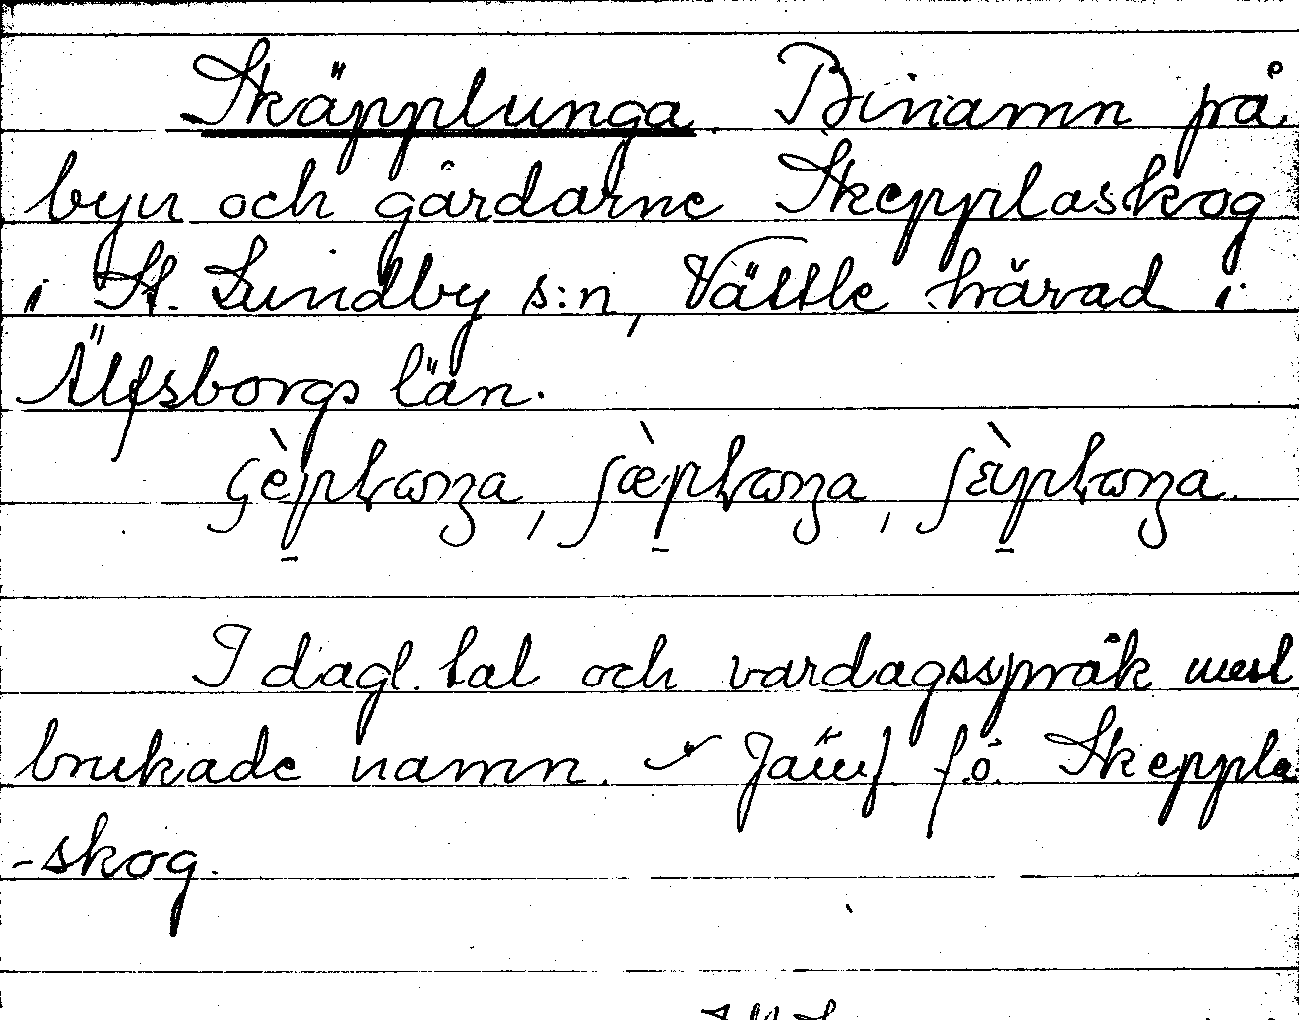 Skäpplunga. Binamn på
byn och gårdarne Skepplaskog
i St. Lundby s:n, Vättle härad i
Älfsborgs län.
I dagl. tal och vardagsspråk mest
brukade namn. Jämf f.ö. Skeppla
-skog.